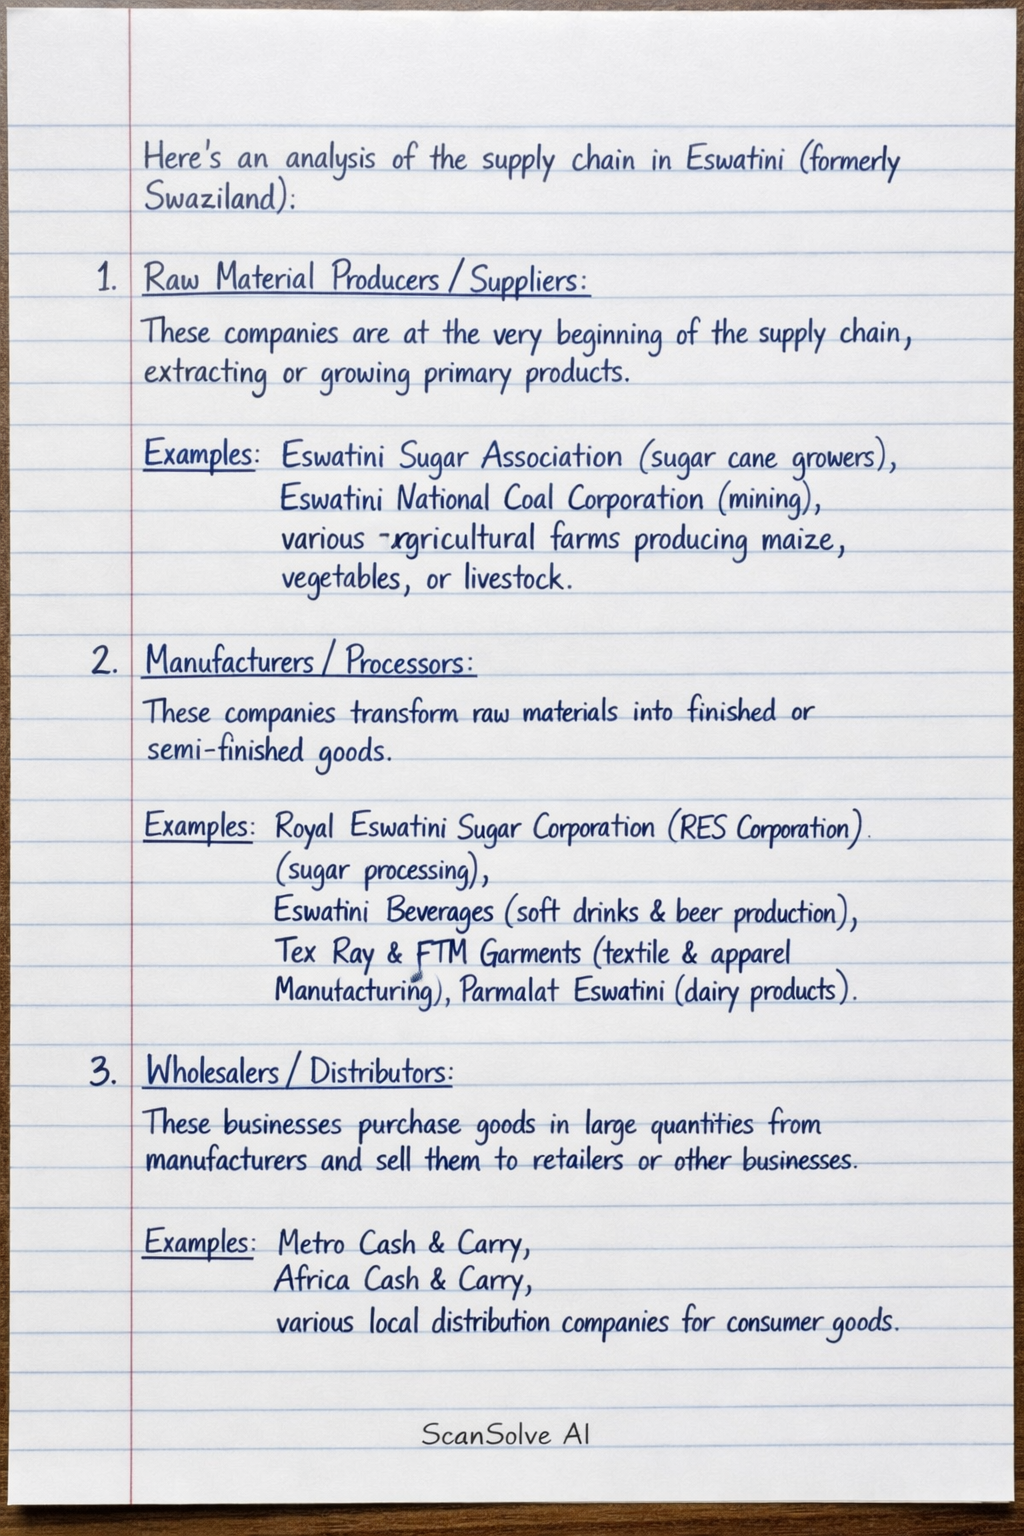 Here's an analysis of the supply chain in Eswatini (formerly
Swaziland):
1. Raw Material Producers / Suppliers:
These companies are at the very beginning of the supply chain,
extracting or growing primary products.
Examples: Eswatini Sugar Association (sugar cane growers),
Eswatini National Coal Corporation (mining),
various agricultural farms producing maize,
vegetables, or livestock.
2. Manufacturers / Processors:
These companies transform raw materials into finished or
semi-finished goods.
Examples: Royal Eswatini Sugar Corporation (RES Corporation).
(sugar processing),
Eswatini Beverages (soft drinks & beer production),
Tex Ray & FTM Garments (textile & apparel
Manutacturing), Parmalat Eswatini (dairy products).
3. Wholesalers / Distributors:
These businesses purchase goods in large quantities from
manufacturers and sell them to retailers or other businesses.
Examples: Metro Cash & Carry,
Africa Cash & Carry,
various local distribution companies for consumer goods.
ScanSolve AI